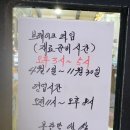 브레이크 타임
(재료 준비시간)
오후 3시~5시
4월1일~11월30일
영업시간
오전11시~오후8시